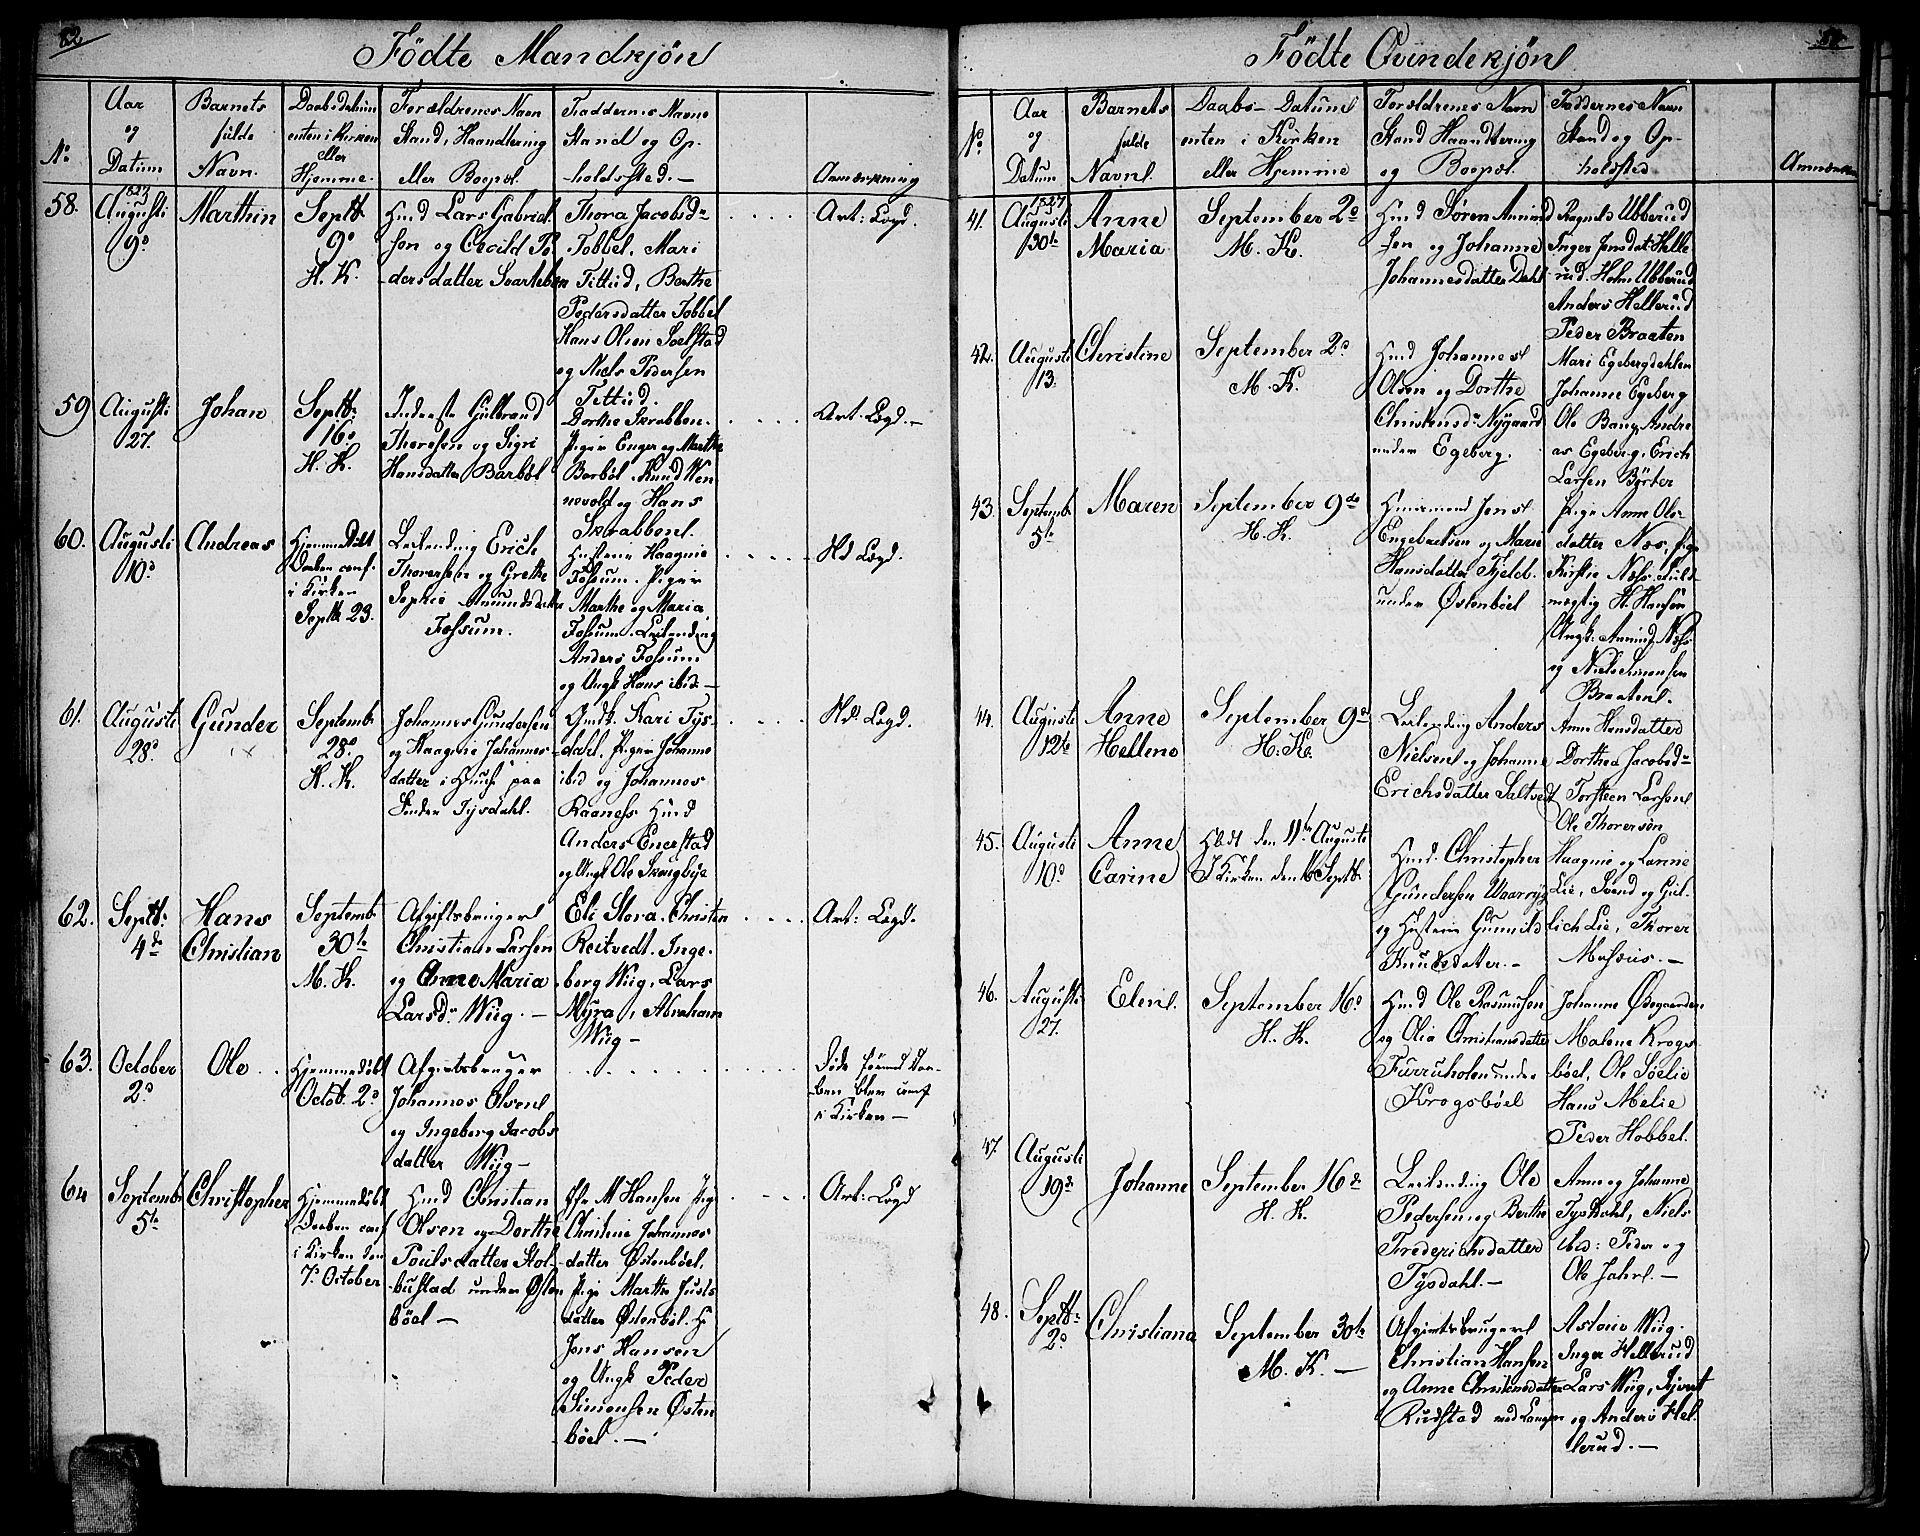 82
Födte Mandkjön
No
Aar
og
Datum
Barnets
fulde
Navn.
Daabsdatum
enten i Kirken
eller
Hjemme.
Forældrenes Navn
Stand, Haandtering
eller Boepæl.
Faddernes Navne
Stand og Op-
holdssted. —
Anmærkning
58.
Augusti
9de
Marthin
Septb.
9de
H. K.
Huusmd Lars Gabriel-
sen og Cecild Pe-
dersdatter
Thora Jacobsd
Tobbel. Mari
Tittud, Berthe
Pedersdatter Tobbel
Hans Olsen
og Niels Pedersen
Tittud.
Art: Lægd.
59
Augusti
27.
Johan
Septb:
16de
H. K.
Inderste Gulbrand
Thoresen og Sigri
Hansdatter Barböl
Dorthe Skrabben.
Piger Enger og Marthe
Barböl. Knud Wen
nevold og Hans
Skrabben.
Art. Lægd. —
60.
Augusti
10de
Andreas
Hjemmedöbt
Daaben conf.
i Kirken
Septb 23.
Leilending Erich
Thoresen og Grethe
Sophie Amundsdatter
Fossum.
Hustrue Haagine
Fossum. Piger
Marthe og Maria
Fossum. Leilending
Anders Fossum
og Ungk Hans ibid. —
Nd Lægd.
61.
Augusti
28de
Gunder
Septemb
28de
H. K.
Johannes Gundersen
og Haagine Johannes-
datter i Huus paa
Söndre Tysdahl.
Gmdk. Kari Tys-
dahl. Piger Johanne
ibid og Johannes
Raaness Huusmd
Anders Enerstad
og Ungk Ole Skougbye
Nd. Lægd.
62.
Septb:
4de
Hans
Christian
Septemb
30te
M. K.
Afgiftsbruger
Christian Larsen
og Anne Maria
Larsd. Wiig. —
Eli Stora. Christen
Reitvedt. Inge-
borg Wiig, Lars
Myra, Abraham
Wiig —
Art: Lægd.
63.
October
2de
Ole
Hjemmedöbt
Octob. 2de
Afgivtsbruger
Johannes Olsen
og Ingeborg Jacobs
datter Wiig —
Döde förend Daa-
ben blev conf
i Kirken —
64
Septemb
5te
Christopher
Hjemmedöbt
Daaben conf
i Kirken den
7de October
Huusmd Christian
Olsen og Dorthe
Poulsdatter Hol-
bustad under Östen
böel —
M Hansen Pige
Christine Johannes-
datter Östenböel,
Pige Marthe Juuls-
datter Östenböl.
Jens Hansen
og Ungk Peder
Simonsen Östen
böel. —
Art: Lægd
Födte Qvindekjön
No.
Aar
og
Datum
Barnets
fulde
Navn.
Daabs-Datum
enten i Kirken
eller Hjemme
Forældrenes Navn
Stand Haandtering
og Boepæl.
Faddernes Navn
Stand og Op-
holdsted
Anmærkn
41.
1827
Augusti
30te
Anne
Maria
September 2de
M. K.
Huusmd Sören Amund
sen og Johanne
Johannesdatter Dahl
Ragnild Ubberud
Inger Jensdat: Helle-
rud. Holm Ubberud
Anders Hellerud
Peder Braaten
42.
Augusti
13.
Christine
September 2de
M. K.
Huusmd Johannes
Olsen og Dorthe
Christensd: Nygaard
under Egeberg.
Mari Egebergdahlen
Johanne Egeberg
Ole Bang, Andre
as Egeberg, Erich
Larsen Börter
43.
Septemb
5te
Maren
September 9de
H. K.
Huusmand Jens
Engebretsen og Marie
Hansdatter Fjeld-
under Östenböel
Pige Anne Ols-
datter Næs, Pige
Kirstie Næss. Fuld-
mægtig H. Hansen
Ungk: Amund Næss
og Niels Simonsen
Braaten.
44.
Augusti
12te
Anne
Hellene
September 9de
H. K.
Leilending Anders
Nielsen og Johanne
Erichsdatter Saltvedt
Anne Hansdatter
Dorthea Jacobsd
Torsteen Larsen
Ole Thoresön
45.
Augusti
10de
Anne
Carine
Hdbt den 11te Augusti
I Kirken den 16 Septb
Huusmd. Christopher
Gundersen
og Hustrue Gunnild
Knudsdatter. —
Haagine og Larine
Lie, Svend og Gul-
lich Lie, Thorer
46.
Augusti
27.
Elen.
September 16de
H. K.
Huusmd Ole Rasmussen
og Olia Christiansdatter
Furruholen under
Krogsböel
Johanne Ödegaarden
Malene Krogs-
böel, Ole Sölie
Hans Melie
Peder Hobbel.
47.
Augusti
19de
Johanne
September 16de
H. K.
Leilending Ole
Pedersen og Berthe
Frederichsdatter
Tysdahl. —
Anne og Johanne
Tysdahl, Niels
ibid: Peder og
Ole Jahr. —
48.
Septb:
2de
Christiana
September 30te
M. K. —
Afgivtsbruger
Christian Hansen
og Anne Christensdatter
Rudstad ved Langen
Wiig.
Inger Hellerud
Lars Wiig, Syvert
og Anders Hel-
lerud. —